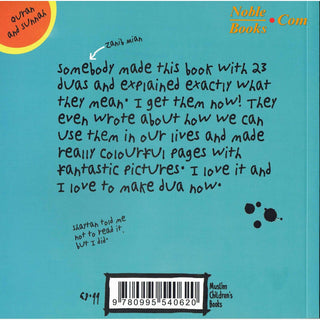 QURAN
and SUNNAH
Noble
Books • Com
Zanib Mian
Somebody made this book with 23
duas and explained exactly what
they mean. I get them now! They
even wrote about how we can
use them in our lives and made
really colourful pages with
fantastic pictures. I love it and
I love to make dua now.
Shaytan told me
not to read it,
but I did.
£9.99
9 780995 540620
Muslim
Children's
Books